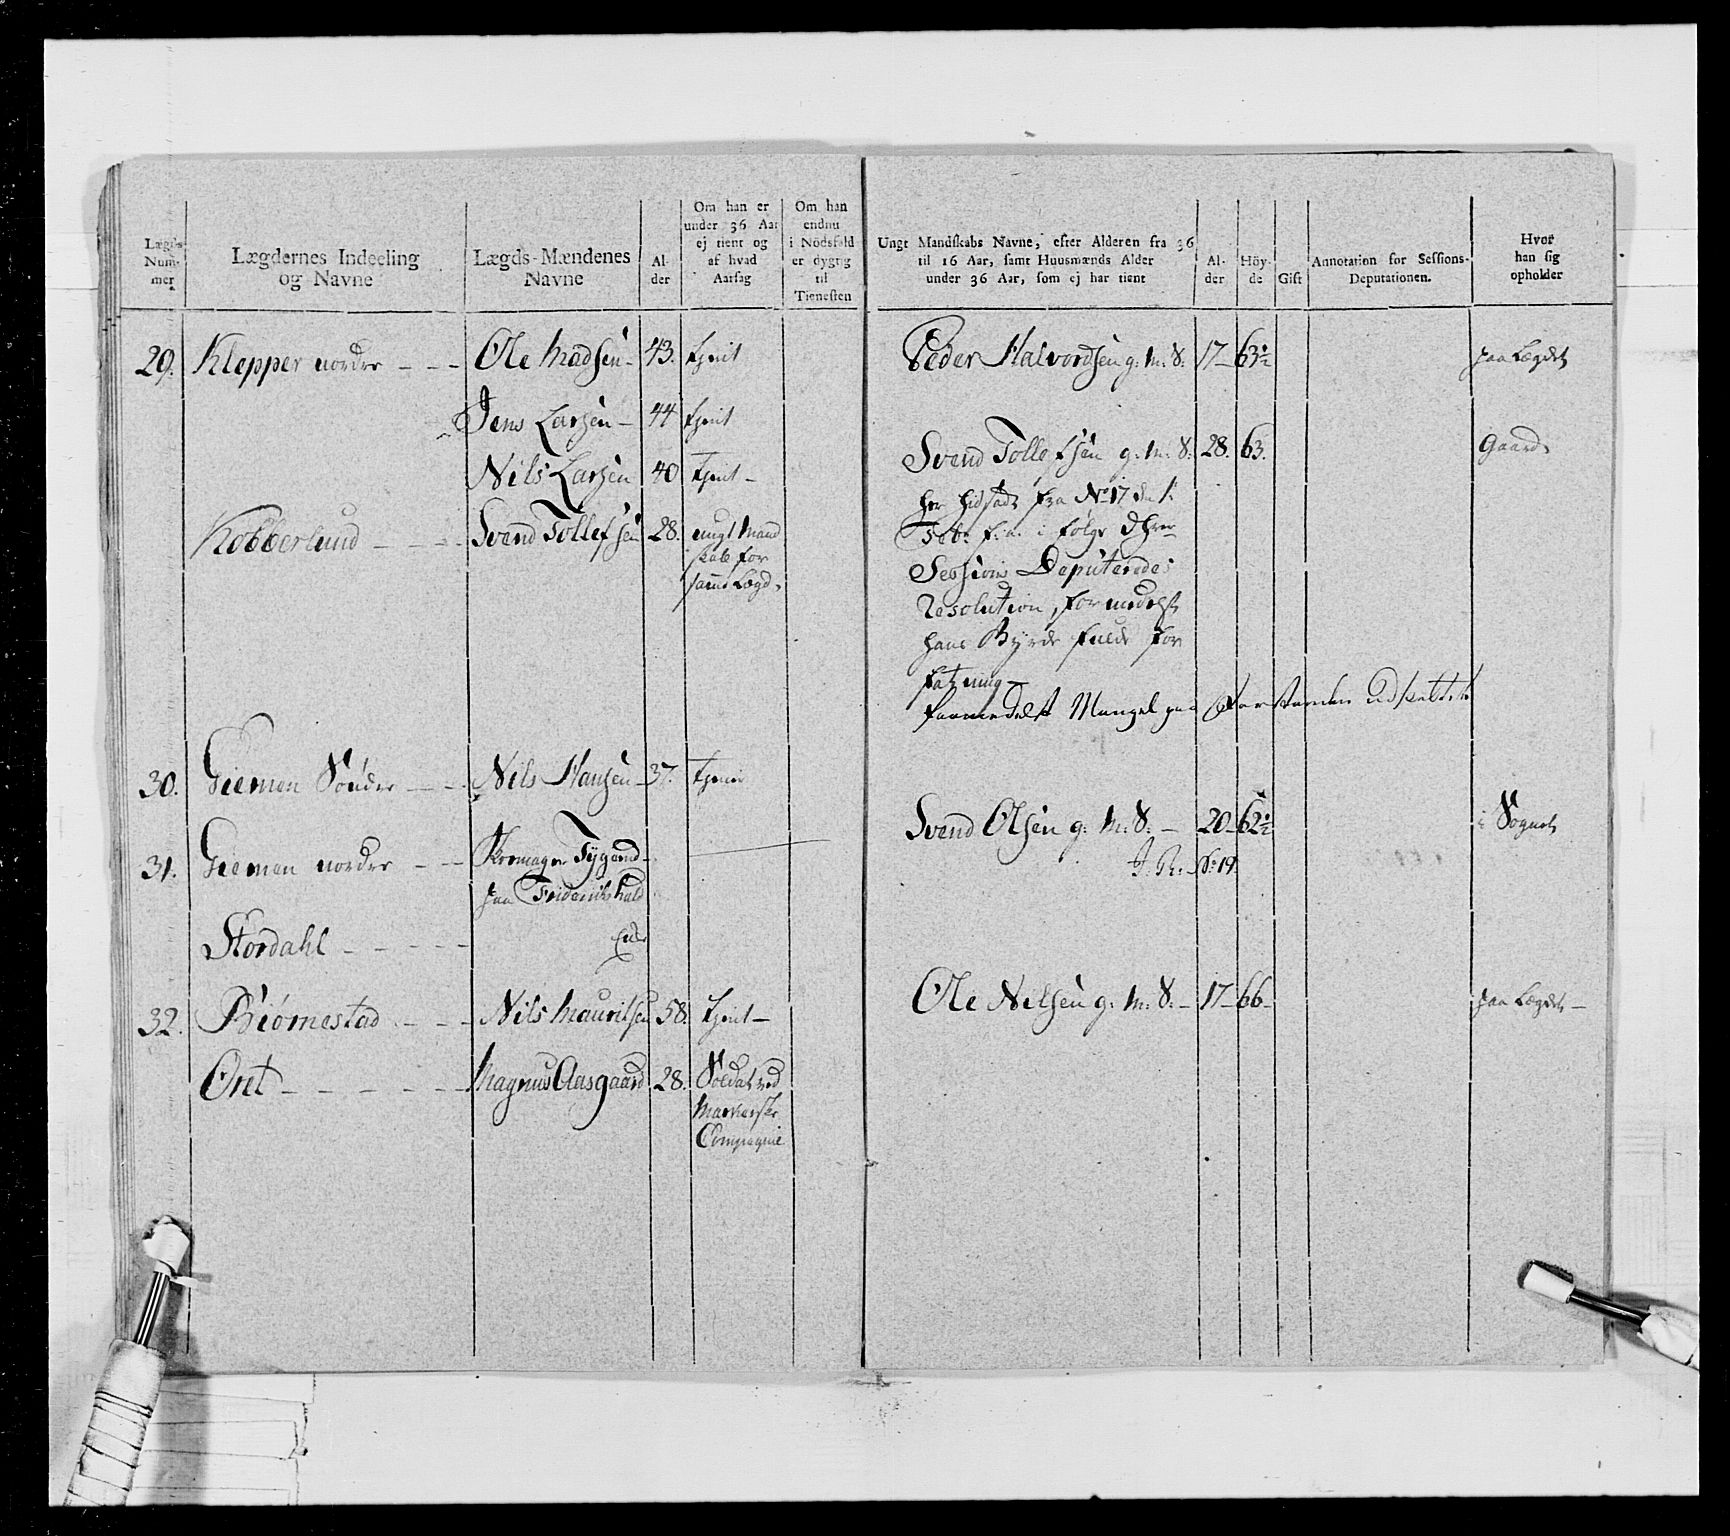 Lægds Num- mer
Lægdernes Indeeling og Navne
Lægds-Mændenes Navne
Al- der
Om han er under 36 Aar ej tient og af hvad Aarsag
Om han endnu i Nödsfald er dygtig til Tienesten
Ungt Mandskabs Navne, efter Alderen fra 36 til 16 Aar, samt Huusmænds Alder under 36 Aar, som ej har tient
Al- der
Höy- de
Gift
Annotation for Sessions- Deputationen.
Hvor han sig opholder
29. Klepper nordre - - - Ole Madsen - 43. tjent
Peder Halvordsen g. M. S: 17 - 63½ paa Lægdet
Jens Larsen - 44 tjent
Svend Tollefsen g. M. S. 28. 63. Gaard.
Nils Larsen 40 Tjent -
her hidsadt fra No 17 den 1:
Kobberlund - - - Svend Tollefsen 28. ungt Mand
skab for
samme Lægd.
Feb: f. a. i følge Dhrr
Sessions Deputeredes
Resolution, formedelst
hans Byrde fulde for
fatning -
formedelst Mangel paa Forstanden Udskettet
30. Giemen Sönder - - - Nils Hansen - 37. tjent
Svend Olsen g. M. S. - 20 - 62½ i Sognet
J. R. No: 19.
31. Giemen nordre - - Skomager Tygend -
paa Friderikshald
Stordahl - - - - - Eier
32. Biörnestad - - - Nils Mauritsen 58. tjent -
Ole Nelsen g. M. S. - 17 - 66 - paa Lægdet -
Ont - - - - - - Magnus Aasgaard 28. Soldat ved
Markerske
Compagnie